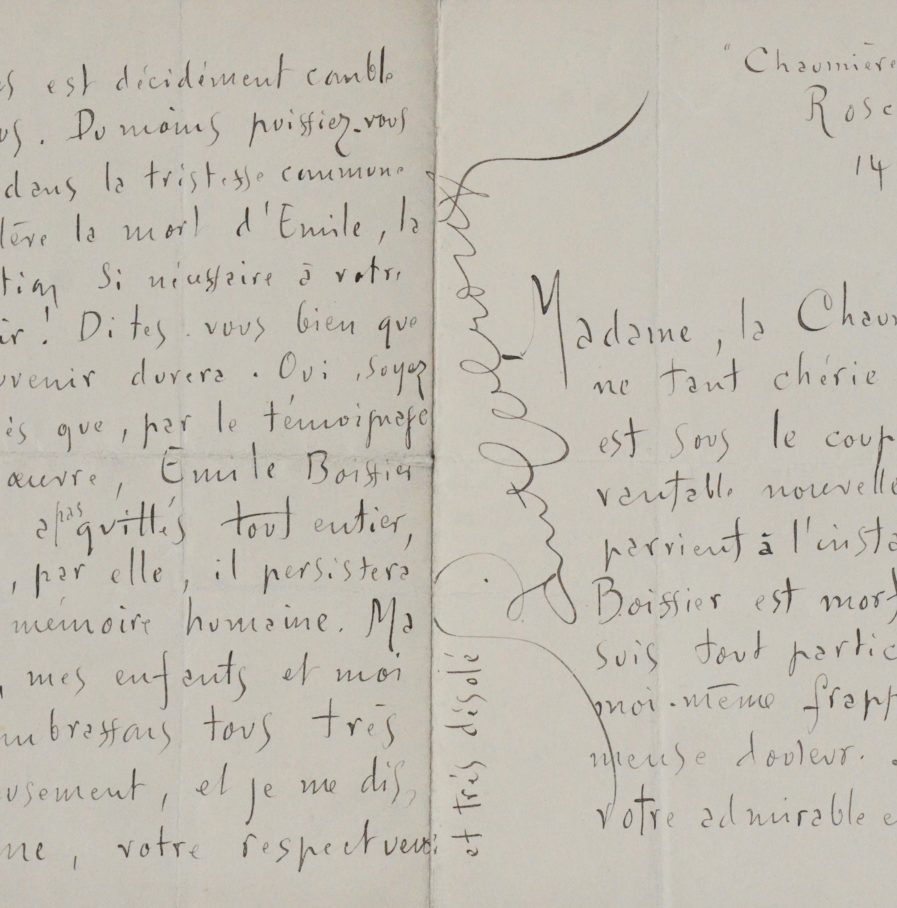 es est décidément comble
us. Du moins puissiez-vous
dans la tristesse commune
lère la mort d'Emile, la
tion si nécessaire à votre
ir ! Dites-vous bien que
uvenir durera. Oui, soyez
ès que, par le témoignage
œuvre, Emile Boissier
a pas quittés tout entier,
, par elle, il persistera
mémoire humaine. Ma
, mes enfants et moi
mbrassons tous très
usement, et je me dis,
me, votre respectueux
et très désolé
"Chaumière
Rosc
14
Madame, la Chaum
ne tant chérie
est sous le coup
vantable nouvelle
parvient à l'insta
Boissier est mort
suis tout partic
moi-même frapp
mense douleur.
votre admirable e